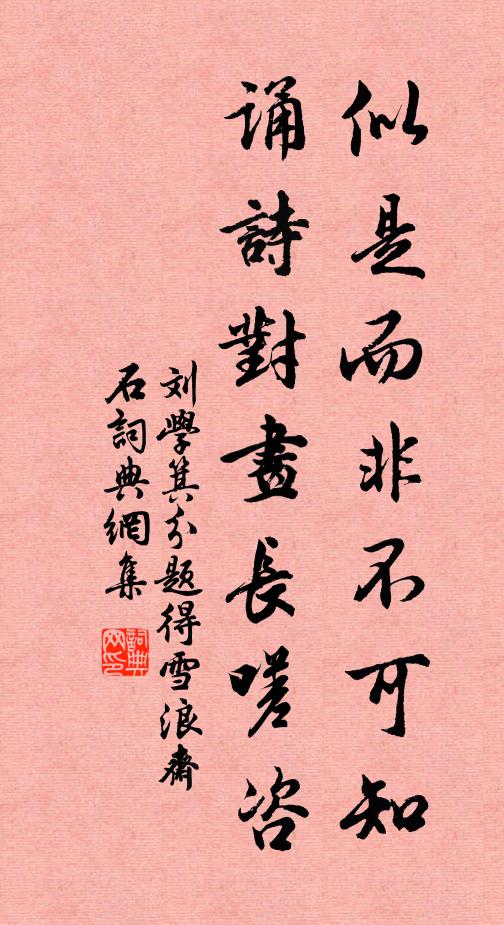 似是而非不可知
誦詩對畫長嗟咨
刘學箕分题得雪浪齋
石詞典網集
詞典网印